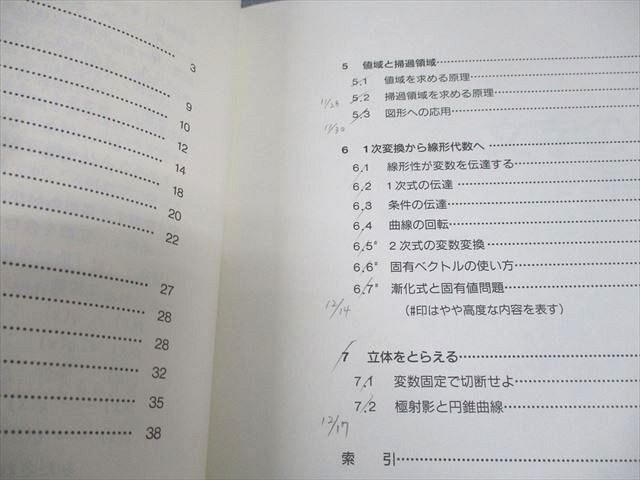 3
9
10
12
14
18
20
22
27
28
28
32
35
38
5 値域と掃過領域
5.1 値域を求める原理
11/29 5.2 掃過領域を求める原理
11/30 5.3 図形への応用
6 1次変換から線形代数へ
6.1 線形性が変数を伝達する
6.2 1次式の伝達
6.3 条件の伝達
6.4 曲線の回転
6.5# 2次式の変数変換
6.6# 固有ベクトルの使い方
6.7# 漸化式と固有値問題
12/14 (#印はやや高度な内容を表す)
7 立体をとらえる
7.1 変数固定で切断せよ
7.2 極射影と円錐曲線
12/17
索 引